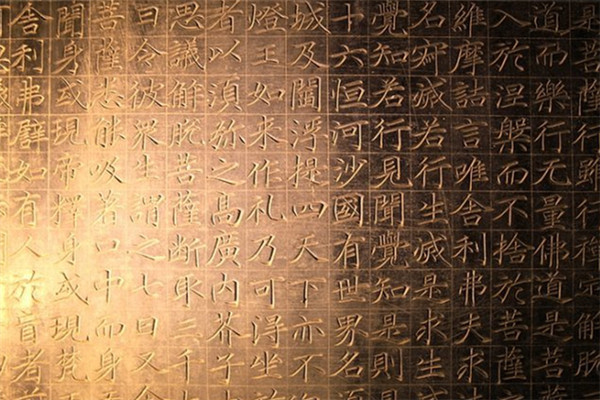 是菩薩行雖行解脫
道而樂行无量佛道是菩
入於涅槃而不捨於菩薩
維摩詰言唯舍利弗夫求
名寂滅若行生滅是求生
覺知若行見聞覺知是則
十六恒河沙國有世界名
城及閻浮提四天下亦不
燈王如來作礼乃可得坐
者以須弥之高廣内芥子
思議解脫菩薩断取三千
曰令彼衆生謂之七日又
菩薩悉能吸著口中而身
聞身或現帝釋身或現梵
舍利弗譬如有人於盲者